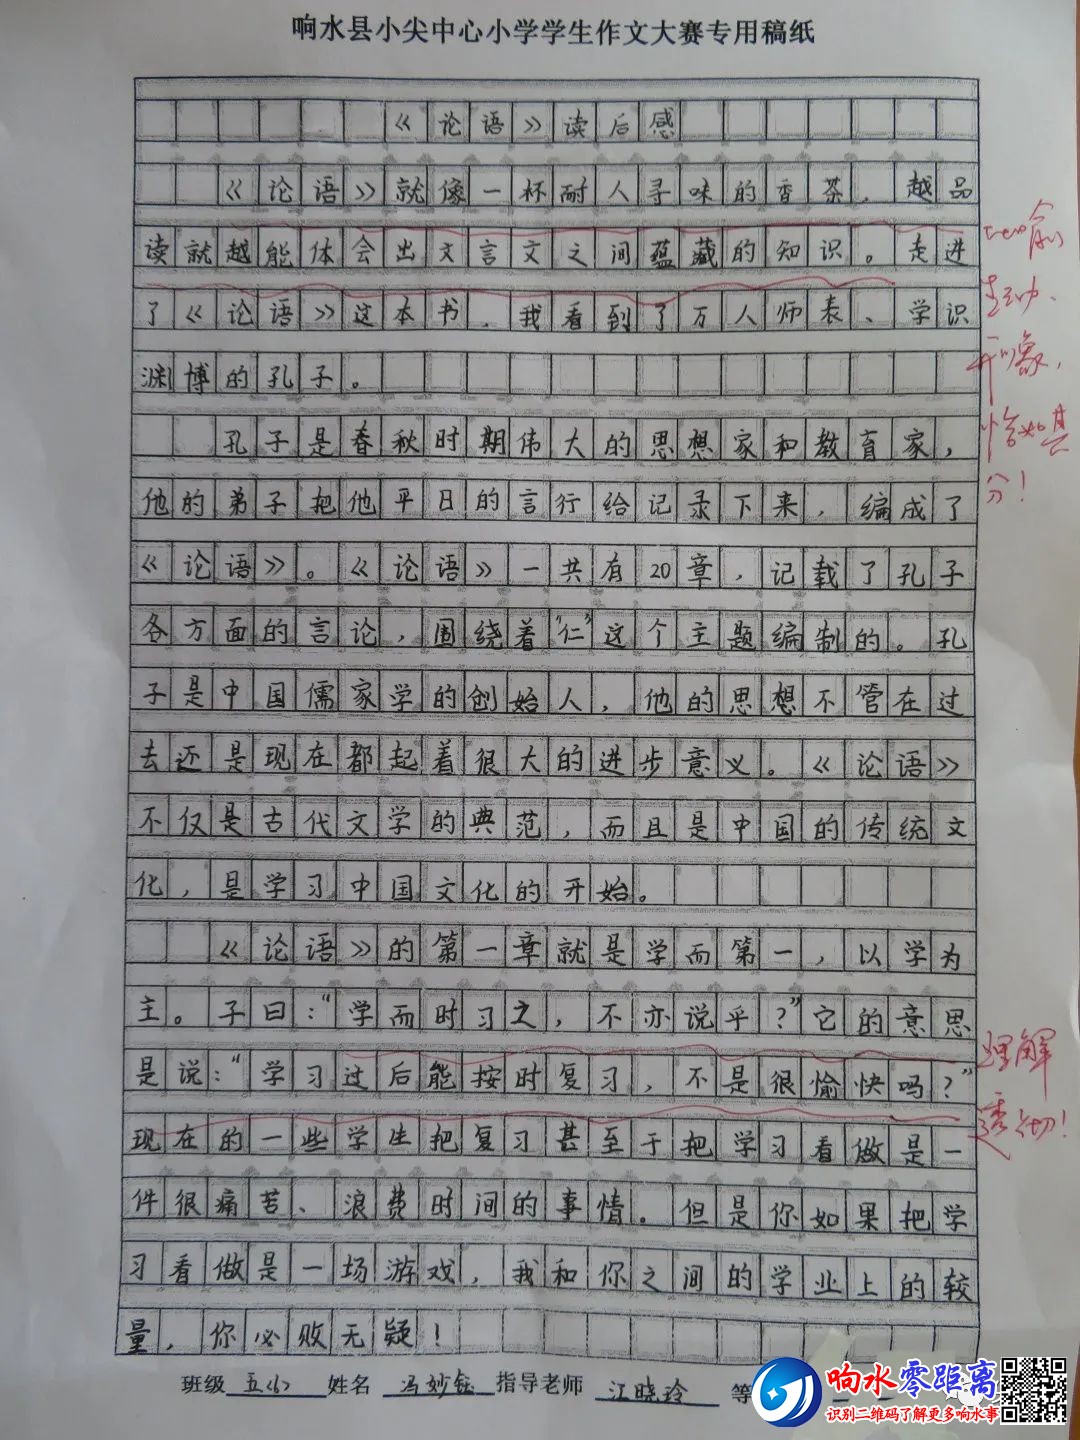 响水县小尖中心小学学生作文大赛专用稿纸
《论语》读后感
《论语》就像一杯耐人寻味的香茶，越品
读就越能体会出文言文之间蕴藏的知识。走进
了《论语》这本书，我看到了万人师表、学识
渊博的孔子。
孔子是春秋时期伟大的思想家和教育家，
他的弟子把他平日的言行给记录下来，编成了
《论语》。《论语》一共有20章，记载了孔子
各方面的言论，围绕着"仁"这个主题编制的。孔
子是中国儒家学的创始人，他的思想不管在过
去还是现在都起着很大的进步意义。《论语》
不仅是古代文学的典范，而且是中国的传统文
化，是学习中国文化的开始。
《论语》的第一章就是学而第一，以学为
主。子曰："学而时习之，不亦说乎？"它的意思
是说："学习过后能按时复习，不是很愉快吗？"
现在的一些学生把复习甚至于把学习看做是一
件很痛苦、浪费时间的事情。但是你如果把学
习看做是一场游戏，我和你之间的学业上的较
量，你必败无疑！
比喻
生动、
形象，
恰如其
分！
理解
透彻！
班级 五(6) 姓名 冯妙钰 指导老师 江晓玲 等
响水零距离
识别二维码了解更多响水事